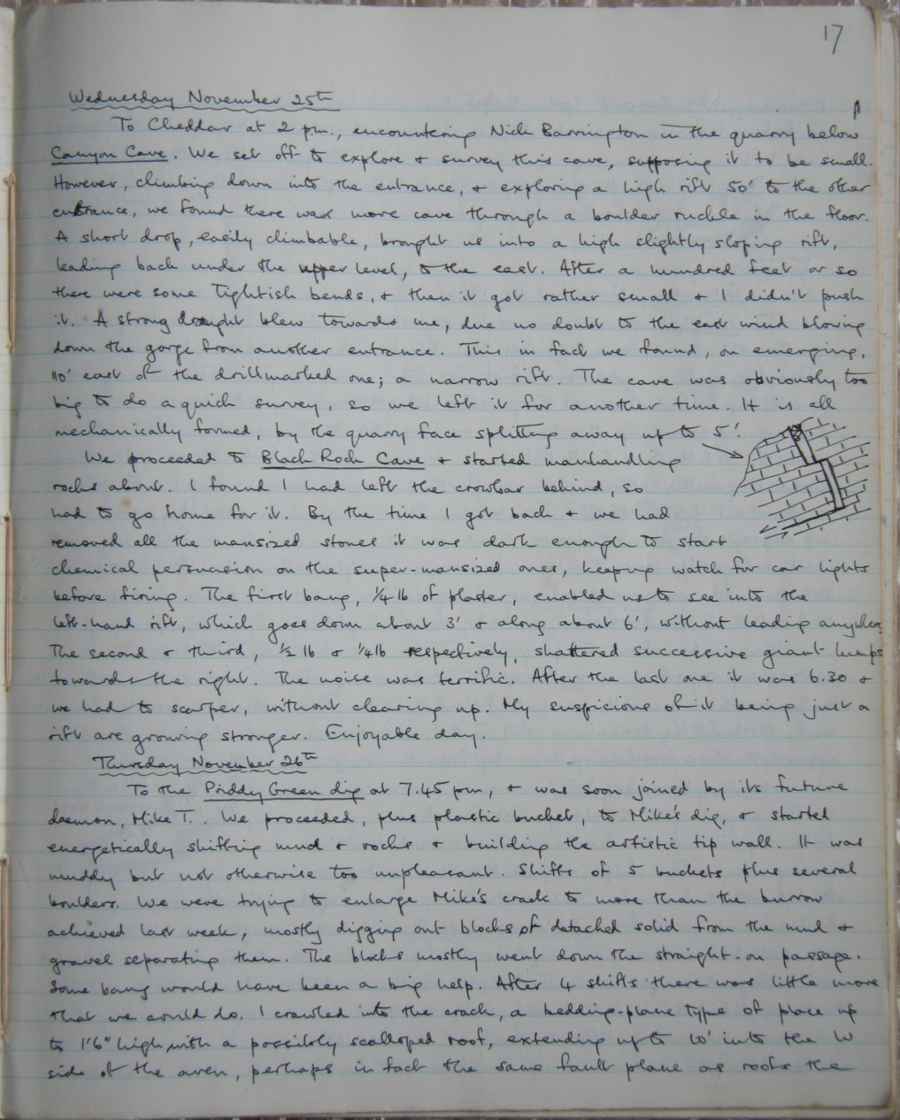 17
Wednesday November 25th
To Cheddar at 2 pm., encountering Nick Barrington in the quarry below
Canyon Cave. We set off to explore & survey this cave, supposing it to be small.
However, climbing down into the entrance, & exploring a high rift 50' to the other
entrance, we found there was more cave through a boulder ruckle in the floor.
A short drop, easily climbable, brought us into a high slightly sloping rift,
leading back under the upper level, to the east. After a hundred feet or so
there were some tightish bends, & then it got rather small & I didn't push
it. A strong draught blew towards me, due no doubt to the east wind blowing
down the gorge from another entrance. This in fact we found, on emerging,
110' east of the drillmarked one; a narrow rift. The cave was obviously too
big to do a quick survey, so we left it for another time. It is all
mechanically formed, by the quarry face splitting away up to 5'.
We proceeded to Black Rock Cave & started manhandling
rocks about. I found I had left the crowbar behind, so
had to go home for it. By the time I got back & we had
removed all the mansized stones it was dark enough to start
chemical persuasion on the super-mansized ones, keeping watch for car lights
before firing. The first bang, 1/4 lb of plaster, enabled us to see into the
left-hand rift, which goes down about 3' & along about 6', without leading anywhere.
The second & third, 1/2 lb & 1/4 lb respectively, shattered successive giant lumps
towards the right. The noise was terrific. After the last one it was 6.30 &
we had to scarper, without clearing up. My suspicions of it being just a
rift are growing stronger. Enjoyable day.
Thursday November 26th
To the Priddy Green dig at 7.45 pm, & was soon joined by its future
daemon, Mike T.. We proceeded, plus plastic bucket, to Mike's dig, & started
energetically shifting mud & rocks & building the artistic tip wall. It was
muddy but not otherwise too unpleasant. Shifts of 5 buckets plus several
boulders. We were trying to enlarge Mike's crack to more than the burrow
achieved last week, mostly digging out blocks of detached solid from the mud &
gravel separating them. The blocks mostly went down the straight-on passage.
Some bang would have been a big help. After 4 shifts there was little more
that we could do. I crawled into the crack, a bedding-plane type of place up
to 1'6" high, with a possibly scalloped roof, extending up to 10' into the W
side of the aven, perhaps in fact the same fault plane as roofs the